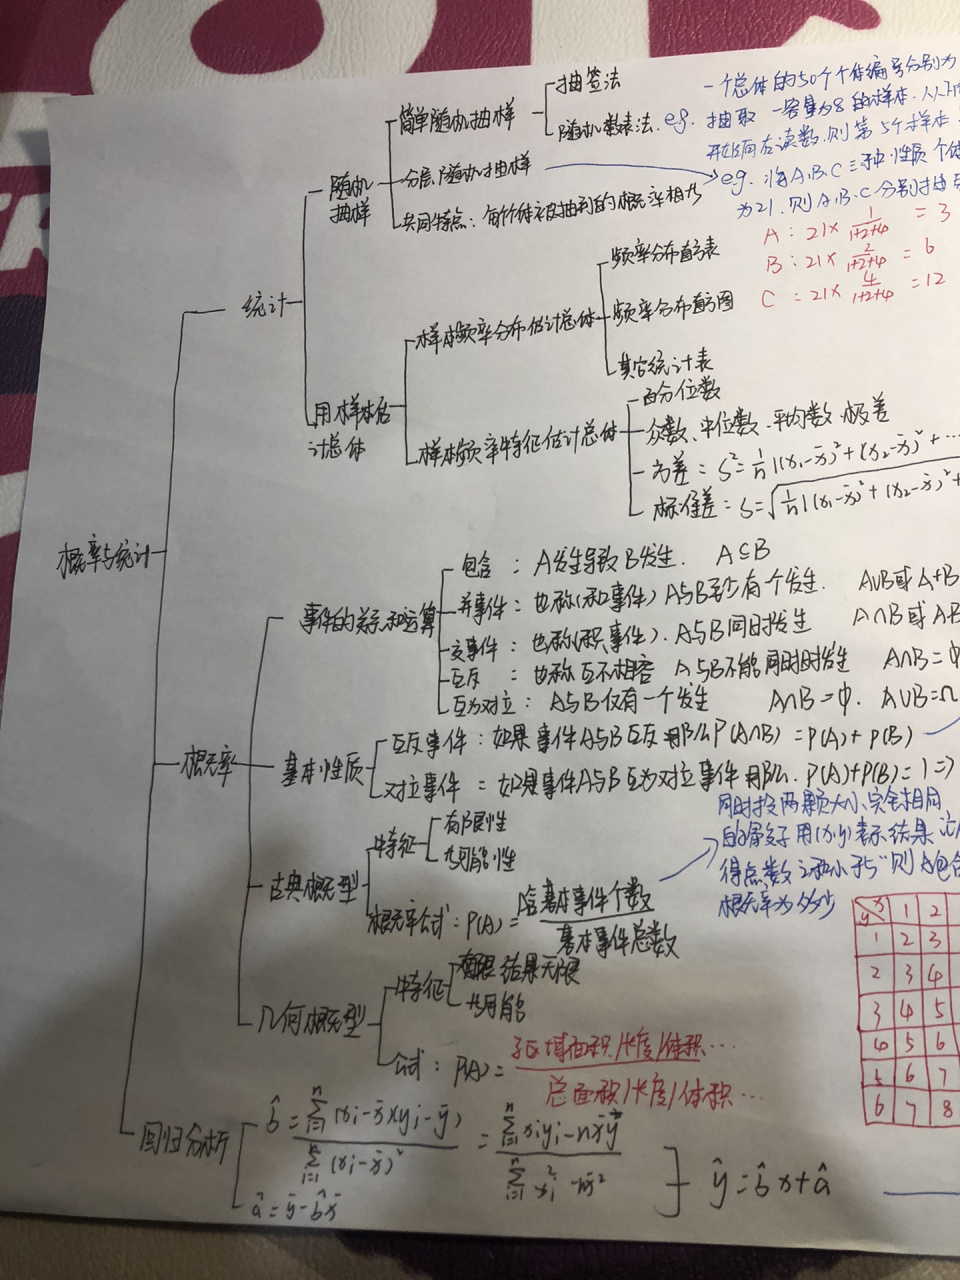 概率与统计
统计
随机
抽样
简单随机抽样
抽签法
随机数表法.
eg. 一个总体的50个个体编号分别为
抽取一容量为8的样本.从
开始向右读数.则第5个样本
分层随机抽样
eg. 将A.B.C三种性质个体
为21.则A.B.C分别抽
A: 21× 1/(1+2+4) = 3
B: 21× 2/(1+2+4) = 6
C = 21× 4/(1+2+4) = 12
共同特点: 每个个体被抽到的概率相
用样本估
计总体
样本频率分布估计总体
频率分布
频率分布直方图
其它统计表
样本频率特征估计总体
百分位数
众数、中位数.平均数.极差
方差: S²=1/n[(x₁-x̄)²+(x₂-x̄)²+…
标准差: S=√1/n[(x₁-x̄)²+(x₂-x̄)²+
概率
事件的关系和运算
包含: A发生导致B发生. A⊆B
并事件: 也称(和事件) A与B至少有个发生. A∪B或A+B
交事件: 也称(积事件). A与B同时发生 A∩B或AB
互斥: 也称互不相容 A与B不能同时发生 A∩B=Φ
互为对立: A与B仅有一个发生 A∩B=Φ. A∪B=Ω
基本性质
互斥事件: 如果事件A与B互斥那么P(A∩B)=P(A)+P(B)
对立事件 = 如果事件A与B互为对立事件那么. P(A)+P(B)=1=>
古典概型
特征
有限性
等可能性
概率公式: P(A)= 含基本事件个数/基本事件总数
同时投两颗大小完全相同
的骰子用(x,y)表示结果
得点数之和小于5"则A包含
概率为多少
x y 1 2
1 2 3
2 3 4
3 4 5
4 5 6
5 6 7
6 7 8
几何概型
特征
结果无限
等可能
公式: P(A)= 子区域面积/长度/体积…/总面积/长度/体积…
回归分析
b̂ = Σⁿᵢ₌₁(xi-x̄)(yi-ȳ)/Σⁿᵢ₌₁(xi-x̄)² = Σⁿᵢ₌₁xiyi-nx̄ȳ/Σⁿᵢ₌₁xi²-nx̄²
â=ȳ-b̂x̄
ŷ=b̂x+â